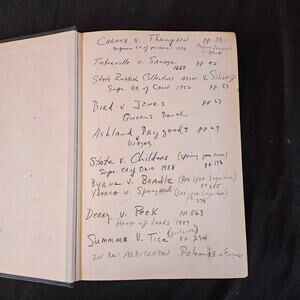 Carnes v. Thompson pp. 39
Supreme Ct of Missouri 1932 transferred intent
Tuberville v. Savage pp 42
1669
State Rubbish Collectors Assoc. v. Siliznoff
Supr. Ct of Court. 1952 pp. 53
Bird v Jones pp 63
Queens Bench
Ashland Dry goods pp 67
v Wages
State v. Childers (spring gun issue)
Sup Ct of Ohio 1938 pp 178
Byrne v. Boadle (Res ipsa loquitur)
pp 225
Ybarra v. Spangard (res ipsa loquitur)
pp. 234
Derry v. Peek pp. 863
House of Lords 1889
Summers v. Tice pp. 294
In Re: Arbitration Polemis &